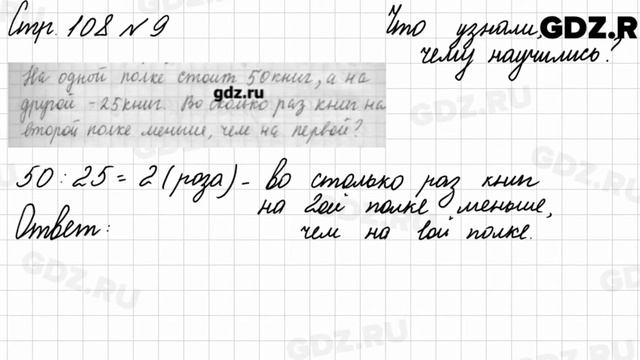 Стр. 108 № 9
Что узнали,
чему научились?
GDZ.R
На одной полке стоит 50 книг, а на
другой - 25 книг. Во сколько раз книг на
второй полке меньше, чем на первой?
gdz.ru
50 : 25 = 2 (роза) - во столько раз книг
на 2ой полке меньше,
чем на 1ой полке.
Ответ:
GDZ.RU
GDZ.RU
GDZ.RU
GDZ.RU